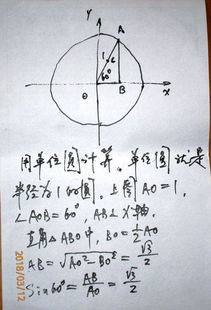 Y
A
1
60°
O
B
x
用单位圆计算，单位圆就是
半径为1的圆，上图AO=1，
∠AOB=60°，AB⊥X轴。
直角△ABO中，BO=½AO
AB=√AO²-BO² = √3/2
Sin60°=AB/AO=√3/2
2018/03/12